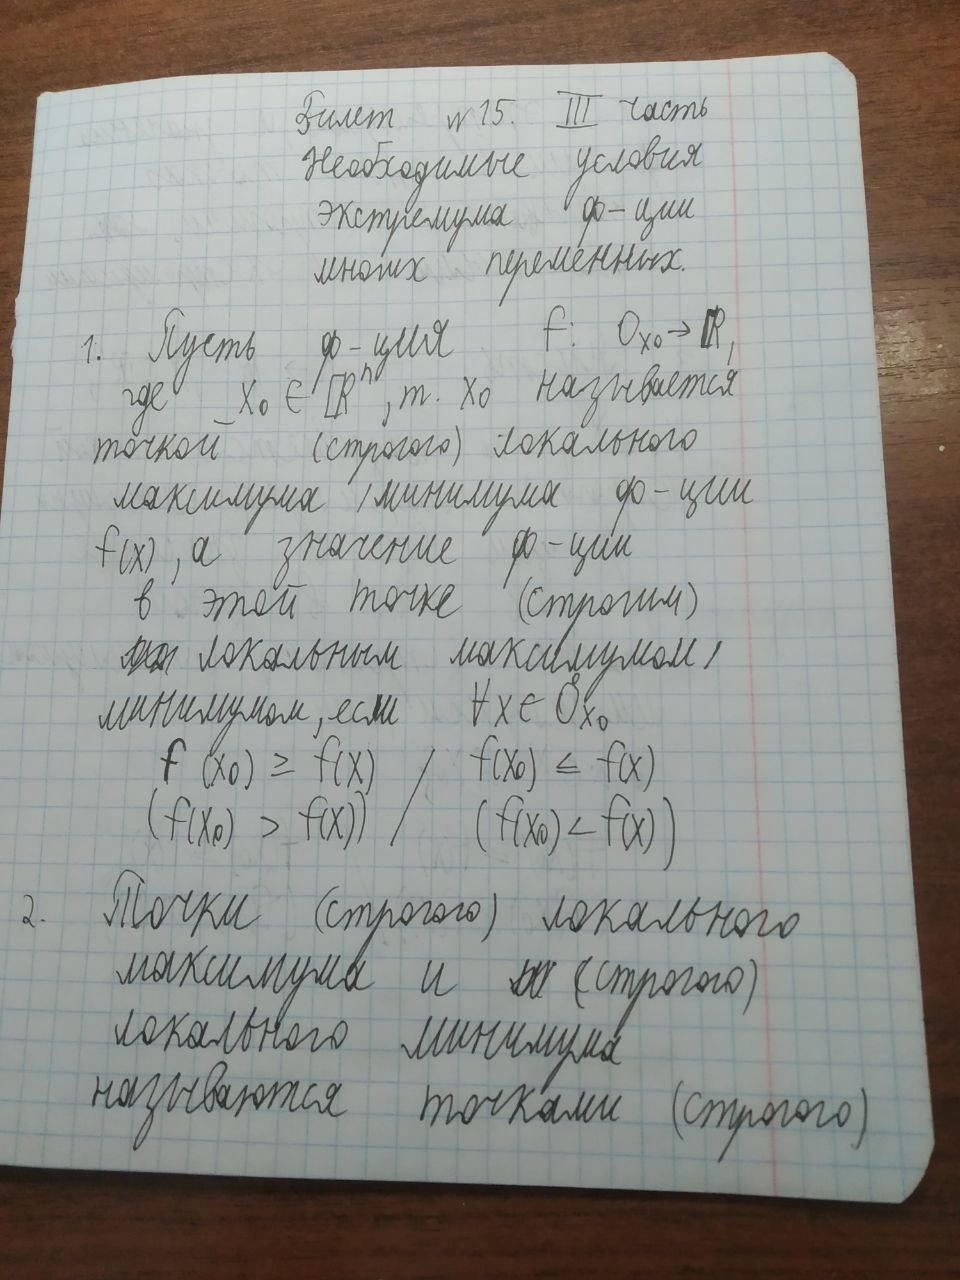 Билет №15. III часть
Необходимые условия
экстремума ф-ции
многих переменных.
1. Пусть ф-ция f: Oₓ₀ → ℝ,
где x₀ ∈ ℝⁿ, т. x₀ называется
точкой (строгого) локального
максимума / минимума ф-ции
f(x), а значение ф-ции
в этой точке (строгим)
локальным максимумом /
минимумом, если ∀x ∈ O̊ₓ₀
f(x₀) ≥ f(x) / f(x₀) ≤ f(x)
(f(x₀) > f(x)) / (f(x₀) < f(x))
2. Точки (строгого) локального
максимума и (строгого)
локального минимума
называются точками (строгого)